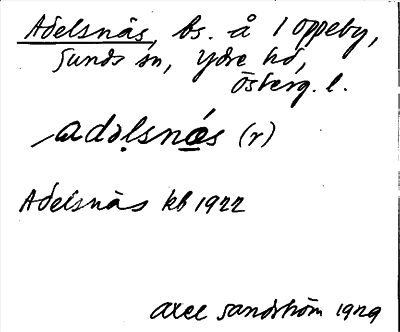 Adelsnäs, bs. å 1 Oppeby,
Sunds sn, Ydre hd,
Österg. l.
adəlsnɷ́s (r)
Adelsnäs kb 1922
Axel Sandström 1929